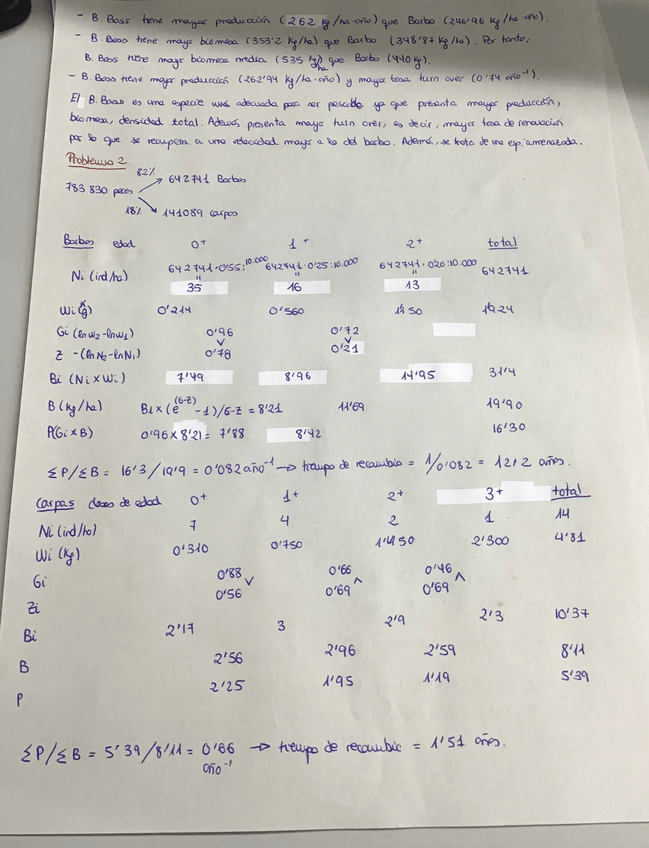 - B. Bass tiene mayor producción (262 kg/ha·año) que Barbo (246'96 kg/ha·año).
- B. Bass tiene mayor biomasa (353'2 kg/ha) que Barbo (348'87 kg/ha). Por tanto,
B. Bass tiene mayor biomasa media (535 kg/ha) que Barbo (440 kg).
- B. Bass tiene mayor producción (262'94 kg/ha·año) y mayor tasa turn over (0'74 año⁻¹).
El B. Bass es una especie más adecuada para ser pescable ya que presenta mayor producción,
biomasa, densidad total. Además presenta mayor turn over, es decir, mayor tasa de renovación
por lo que se recupera a una velocidad mayor a la del barbo. Además, se trata de una esp. amenazada.
Problema 2
783 830 peces 82% → 642741 Barbos
18% → 141089 carpas
Barbos edad 0+ 1+ 2+ total
Ni (ind/ha) 642741·0'55:10.000 642741·0'25:10.000 642741·0'20:10.000 642741
" " "
35 16 13
Wi (Kg) 0'214 0'560 1'150 1'924
Gi (ln w2-ln w1) 0'96 0'72
Z -(ln N2-ln N1) 0'78 0'21
Bi (Ni x Wi) 7'49 8'96 14'95 31'4
B (kg/ha) Bi x (e^(G-Z) -1)/G-Z = 8'21 11'69 19'90
P(Gi x B) 0'96 x 8'21 = 7'88 8'42 16'30
ΣP/ΣB = 16'3/19'9 = 0'082 año⁻¹ → tiempo de recambio = 1/0'082 = 12'2 años.
Carpas clases de edad 0+ 1+ 2+ 3+ total
Ni (ind/ha) 7 4 2 1 14
Wi (kg) 0'310 0'750 1'450 2'300 4'81
Gi 0'88 0'66 0'46
Zi 0'56 0'69 0'69
Bi 2'17 3 2'9 2'3 10'37
B 2'56 2'96 2'59 8'11
P 2'25 1'95 1'19 5'39
ΣP/ΣB = 5'39/8'11 = 0'66 año⁻¹ → tiempo de recambio = 1'51 años.